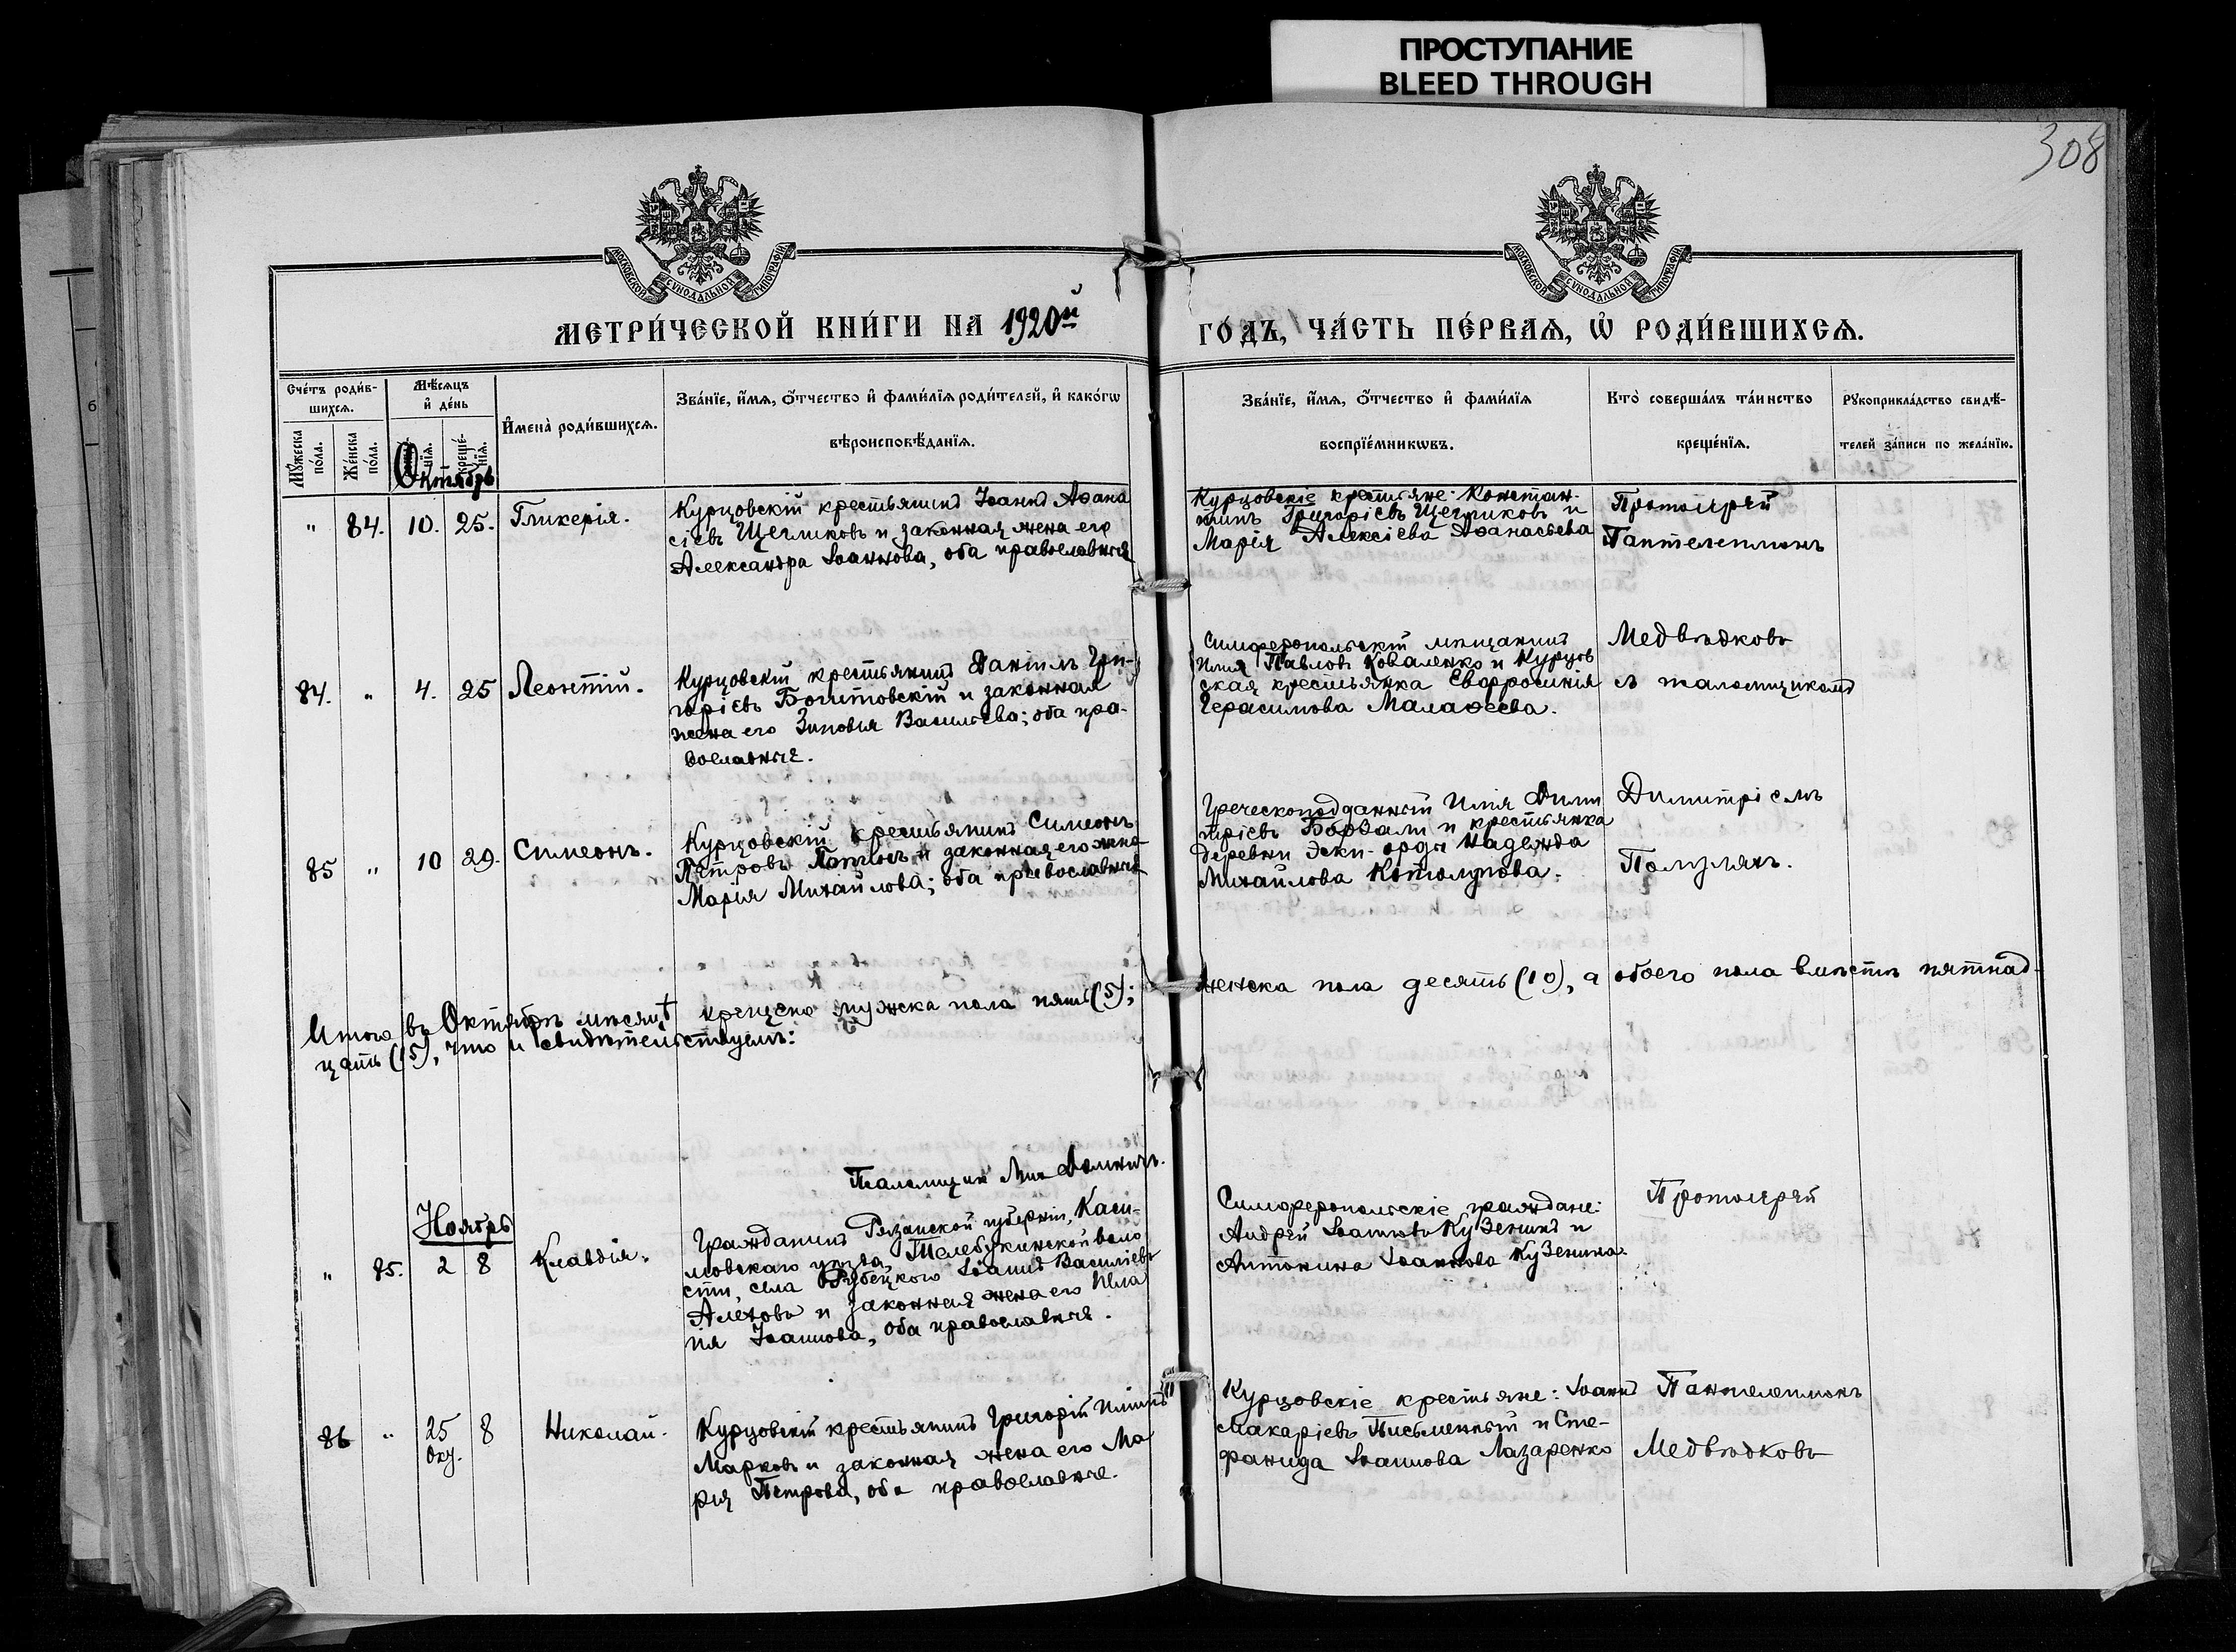 ПРОСТУПАНИЕ
BLEED THROUGH
308
МОСКОВСКОЙ СѴНОДАЛЬНОЙ ТИПОГРАФІИ
МОСКОВСКОЙ СѴНОДАЛЬНОЙ ТИПОГРАФІИ
МЕТРИ́ЧЕСКОЙ КНИ́ГИ НА 1920й
ГО́ДЪ, ЧА́СТЬ ПЕ́РВАѦ, Ѽ РОДИ́ВШИХСѦ.
Сче́тъ роди́в-
шихсѧ.
Мѣ́сѧцъ
и҆ де́нь
И҆мена̀ роди́вшихсѧ.
Зва́нїе, и҆́мѧ, ѻ҆́тчество и҆ фами́лїѧ роди́телей, и҆ како́гѡ
вѣроисповѣ́данїѧ.
Зва́нїе, и҆́мѧ, ѻ҆́тчество и҆ фами́лїѧ
воспрїе́мникѡвъ.
Кто̀ соверша́лъ та́инство
креще́нїѧ.
Рꙋкоприкла́дство свидѣ́-
телей за́писи по жела́нїю.
Мꙋ́жеска
по́ла.
Же́нска
по́ла.
нїѧ.
креще́-
нїѧ.
Октябрь
" 84. 10. 25. Гликерія.
Курцовскій крестьянинъ Іоаннъ Аѳана
сіевъ Щегликовъ и законная жена его
Александра Іоаннова, оба православные
Курцовскіе крестьяне: Констан-
тинъ Григоріевъ Щегликовъ и
Марія Алексіева Аѳанасьева
Протоіерей
Пантелеимонъ
84. " 4. 25 Леонтій.
Курцовскій крестьянинъ Даніилъ Гри-
горіевъ Богитовскій и законная
жена его Зиновія Васильева; оба пра-
вославные.
Симферопольскій мѣщанинъ
Илія Павловъ Коваленко и Курцов
ская крестьянка Евфросинія
Герасимова Малаѳеева.
Медвѣдковъ
съ псаломщикомъ
85 " 10 29. Симеонъ.
Курцовскій крестьянинъ Симеонъ
Петровъ и законная его жена
Марія Михайлова; оба православные
Греческоподданный Илія Дими
тріевъ Бордали и крестьянка
деревни Эски-орды Надежда
Михайлова Котолупова.
Димитріемъ
Полулянъ.
Итого въ Октябрѣ мѣсяцѣ крещено мужска пола пять (5);
женска пола десять (10), а обоего пола вмѣстѣ пятнад-
цать (15), что и свидѣтельствуемъ:
Псаломщик
Ноябрь
" 85. 2 8 Клавдія.
Гражданинъ Рязанской губерніи, Каси-
мовскаго уѣзда, Телебукинской воло
сти, села Рубецкого Іоаннъ Василіевъ
Алеховъ и законная жена его Иула
нія Іоаннова, оба православные.
Симферопольскіе граждане:
Андрей Іоанновъ Кузенинъ и
Антонина Іоаннова Кузенина.
Протоіерей
86 " 25 8 Николай.
Окт.
Курцовскій крестьянинъ Григорій Иліинъ
Марковъ и законная жена его Ма
рія Петрова, оба православные.
Курцовскіе крестьяне: Іоаннъ
Макаріевъ Письменный и Сте-
фанида Іоаннова Лазаренко
Пантелеимонъ
Медвѣдковъ